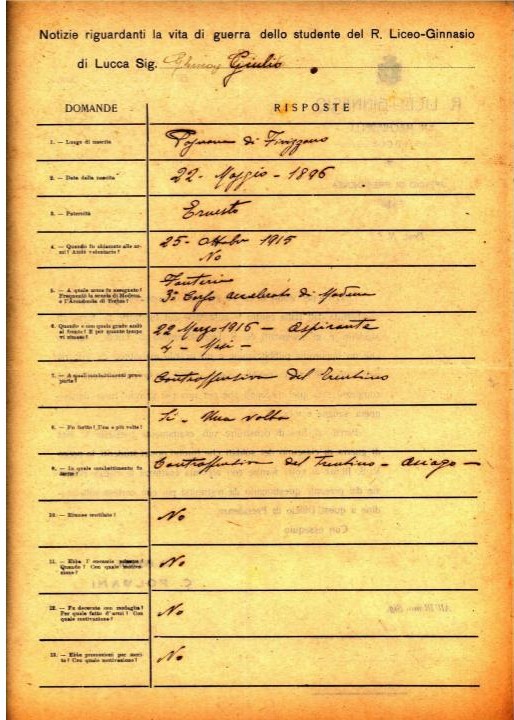 Notizie riguardanti la vita di guerra dello studente del R. Liceo-Ginnasio
di Lucca Sig. Giulio
DOMANDE
RISPOSTE
1. — Luogo di nascita
di Fivizzano
2. — Data della nascita
22 - Maggio - 1896
3. — Paternità
Ernesto
4. — Quando fu chiamato alle armi? Andò volontario?
25 - Ottobre 1915
No
5. — A quale arma fu assegnato?
Frequentò la scuola di Modena,
o l'Accademia di Torino?
Fanteria
3° Corso accelerato di Modena
6. Quando e con quale grado andò
al fronte? E per quanto tempo
vi rimase?
22 Marzo 1916 - Aspirante
4 - Mesi -
7. — A quali combattimenti prese
parte?
Controffensiva del Trentino
8. — Fu ferito? Una o più volte?
Si - Una volta
9. — In quale combattimento fu
ferito?
Controffensiva del Trentino - Asiago -
10. — Rimase mutilato?
No
11. — Ebbe l'encomio
Quando? Con quale motivazione?
No
12. — Fu decorato con medaglia?
Per quale fatto d'armi? Con
quale motivazione?
No
13. — Ebbe promozioni per merito? Con quale motivazione?
No